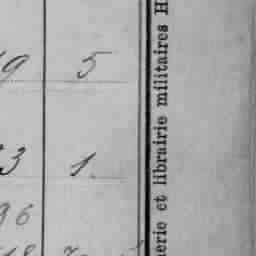 9 5
3 1.
96
erie et librairie militaires H